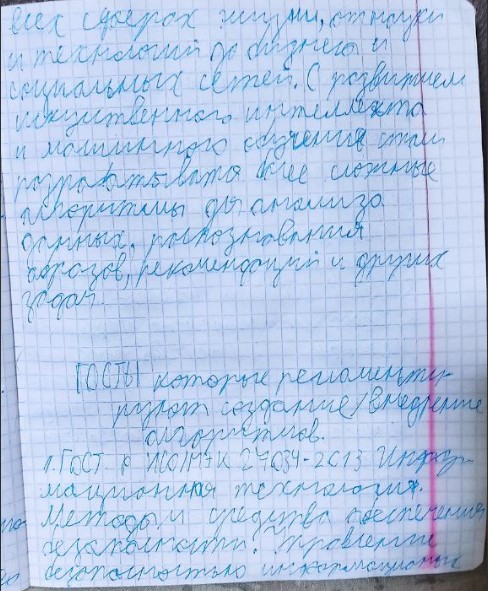 всех сферах жизни, от науки
и технологий до бизнеса и
социальных сетей. С развитием
искуственного интеллекта
и машинного обучения стали
разрабатыватся более сложные
алгоритмы для анализа
данных, распознавания
образов, рекомендаций и других
задач.
ГОСТЫ которые регламенти-
руют создание/внедрение
алгоритмов.
1. ГОСТ Р ИСО/МЭК 27034-2013 Инфор-
мационная технология.
Методы и средства обеспечения
безопасности. Управление
безопасностью информационных